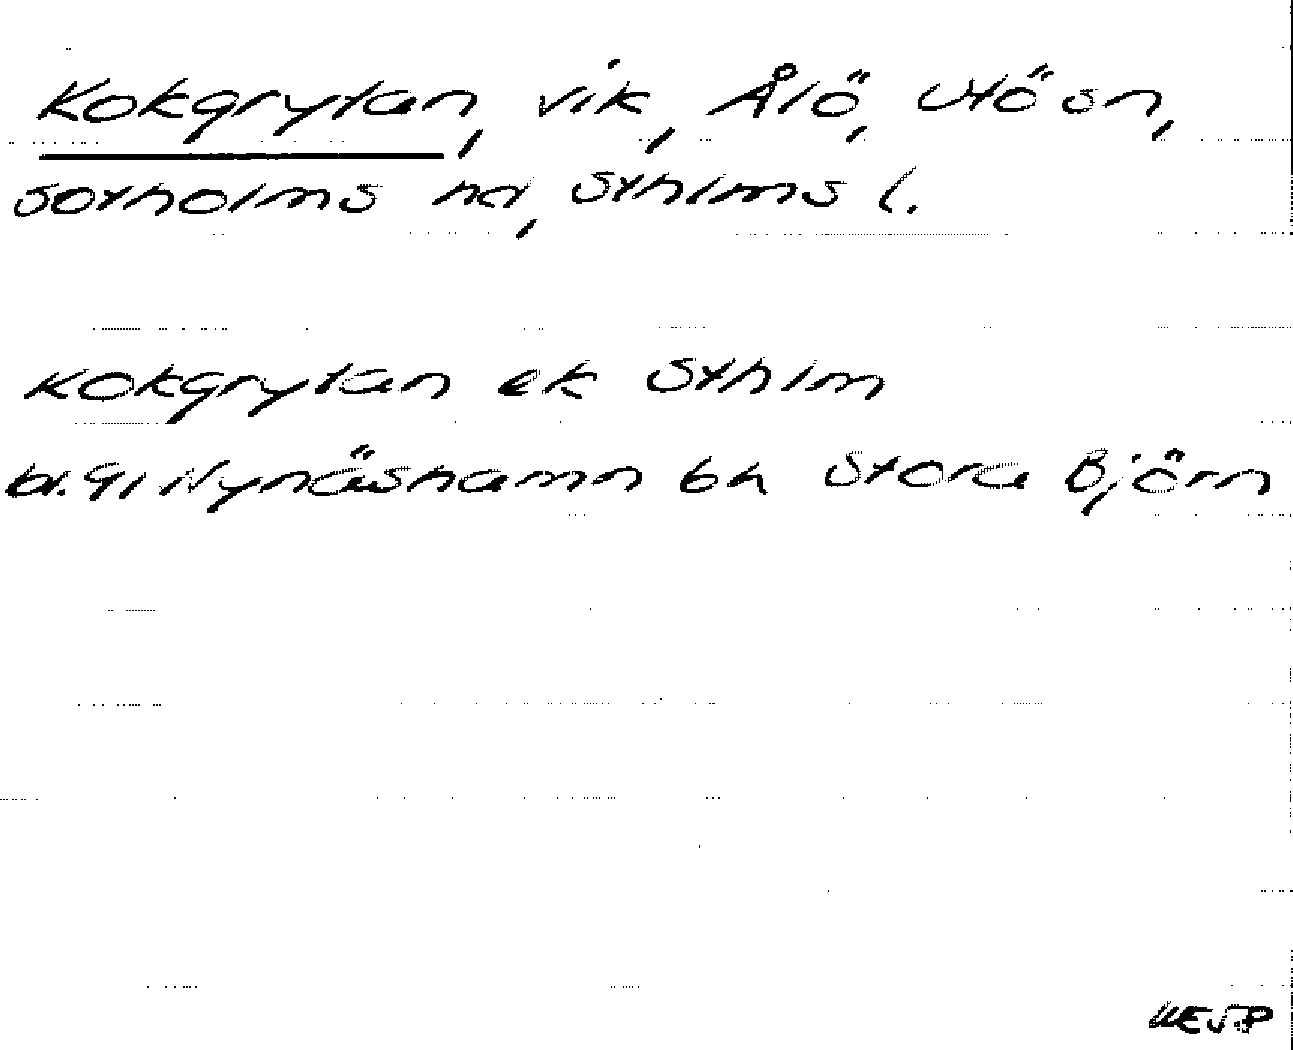 Kokgrytan, vik, Ålö, Utö sn,
Sotholms hd, Sthlms l.
Kokgrytan ek Sthlm
bl. 91 Nynäshamn bh Stora Björn